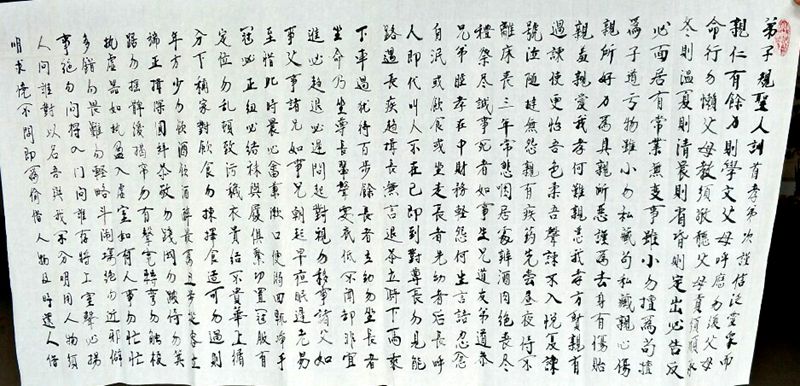 弟子規聖人訓首孝弟次謹信泛愛眾而
親仁有餘力則學文父母呼應勿緩父母
命行勿懶父母教須敬聽父母責須順承
冬則溫夏則凊晨則省昏則定出必告反
必面居有常業無變事雖小勿擅為苟擅
為子道亏物雖小勿私藏苟私藏親心傷
親所好力為具親所惡謹為去身有傷貽
親羞親愛我孝何難親惡我孝方賢親有
過諫使更怡吾色柔吾聲諫不入悅復諫
號泣隨撻無怨親有疾藥先嘗晝夜侍不
離床喪三年常悲咽居處辦酒肉絕喪盡
禮祭盡誠事死者如事生兄道友弟道恭
兄弟睦孝在中財物輕怨何生言語忍忿
自泯或飲食或坐走長者先幼者后長呼
人即代叫人不在己即到對尊長勿見能
路遇長疾趨揖長無言退恭立騎下馬乘
下車過猶待百步餘長者立幼勿坐長者
坐命乃坐尊長前聲要低低不聞卻非宜
進必趨退必遲問起對視勿移事諸父如
事父事諸兄如事兄朝起早夜眠遲老易
至惜此時晨必盥兼漱口便溺回輒淨手
冠必正紐必結襪與履俱緊切置冠服有
定位勿亂頓致污穢衣貴潔不貴華上循
分下稱家對飲食勿揀擇食適可勿過則
年方少勿飲酒飲酒醉最為丑步從容立
端正揖深圓拜恭敬勿踐閾勿跛倚勿箕
踞勿搖髀緩揭帘勿有聲寬轉彎勿觸棱
執虛器如執盈入虛室如有人事勿忙忙
多錯勿畏難勿輕略斗鬧場絕勿近邪僻
事絕勿問將入门問誰存將上堂聲必揚
人問誰對以名吾與我不分明用人物須
明求倘不問即為偷借人物及時還人借